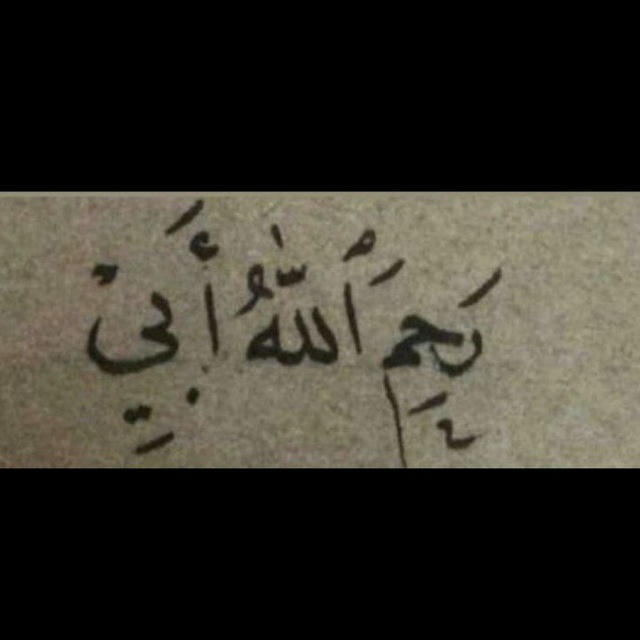 رَحِمَ ٱللّٰهُ أَبِيْ